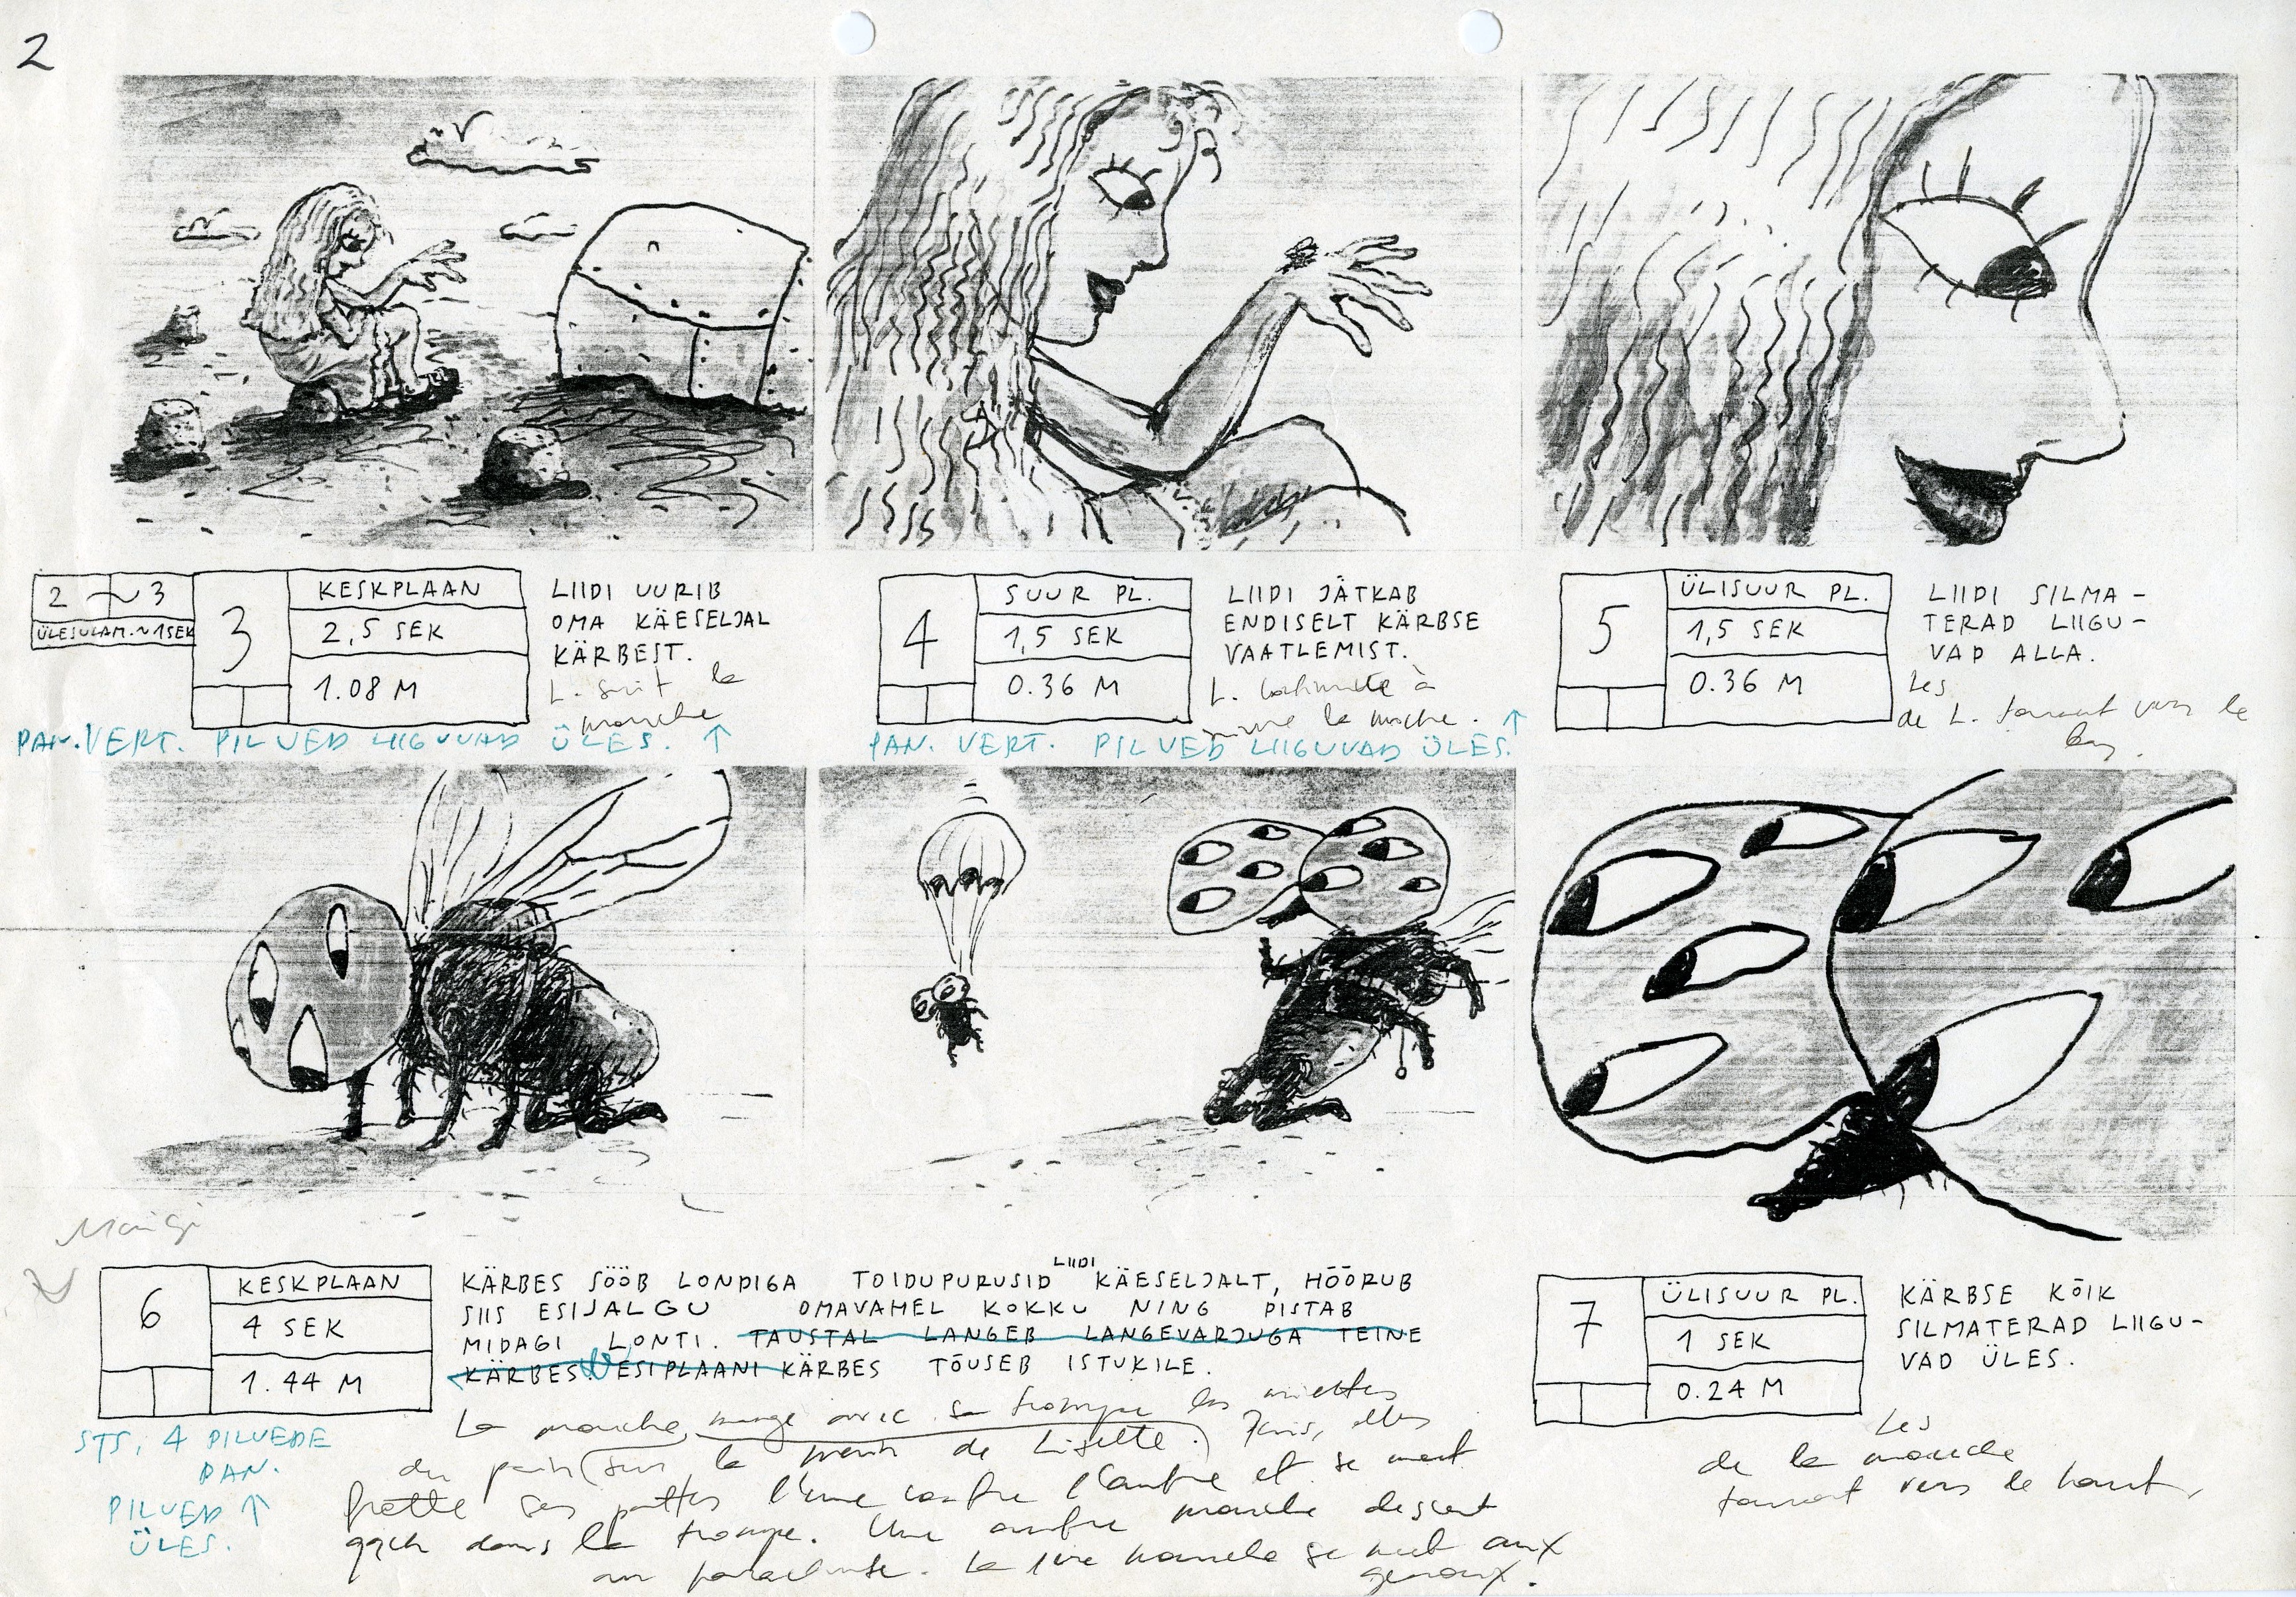 2
2 ~ 3
ÜLESULAM. ~ 1SEK
3
KESKPLAAN
2,5 SEK
1.08 M
LIIDI UURIB
OMA KÄESELJAL
KÄRBEST.
L. suit la
mouche
PAN. VERT. PILVED LIIGUVAD ÜLES. ↑
4
SUUR PL.
1,5 SEK
0.36 M
LIIDI JÄTKAB
ENDISELT KÄRBSE
VAATLEMIST.
L. continue à
suivre la mouche.
PAN. VERT. PILVED LIIGUVAD ÜLES. ↑
5
ÜLISUUR PL.
1,5 SEK
0.36 M
LIIDI SILMA-
TERAD LIIGU-
VAD ALLA.
Les
de L. tournent vers le
bas.
6
KESKPLAAN
4 SEK
1.44 M
KÄRBES SÖÖB LONDIGA TOIDUPURUSID LIIDI KÄESELJALT, HÕÕRUB
SIIS ESIJALGU OMAVAHEL KOKKU NING PISTAB
MIDAGI LONTI. TAUSTAL LANGEB LANGEVARJUGA TEINE
KÄRBES. ESIPLAANI KÄRBES TÕUSEB ISTUKILE.
La mouche mange avec sa trompe les miettes
du pain (sur la main de Lisette.) Puis, elles
frotte ses pattes l'une contre l'autre et se met
qqch dans la trompe. Une autre mouche descent
en parachute. La 1ère mouche se met aux
genoux.
STS, 4 PILVEDE
PAN.
PILVED ↑
ÜLES.
7
ÜLISUUR PL.
1 SEK
0.24 M
KÄRBSE KÕIK
SILMATERAD LIIGU-
VAD ÜLES.
Les
de la mouche
tournent vers le haut.